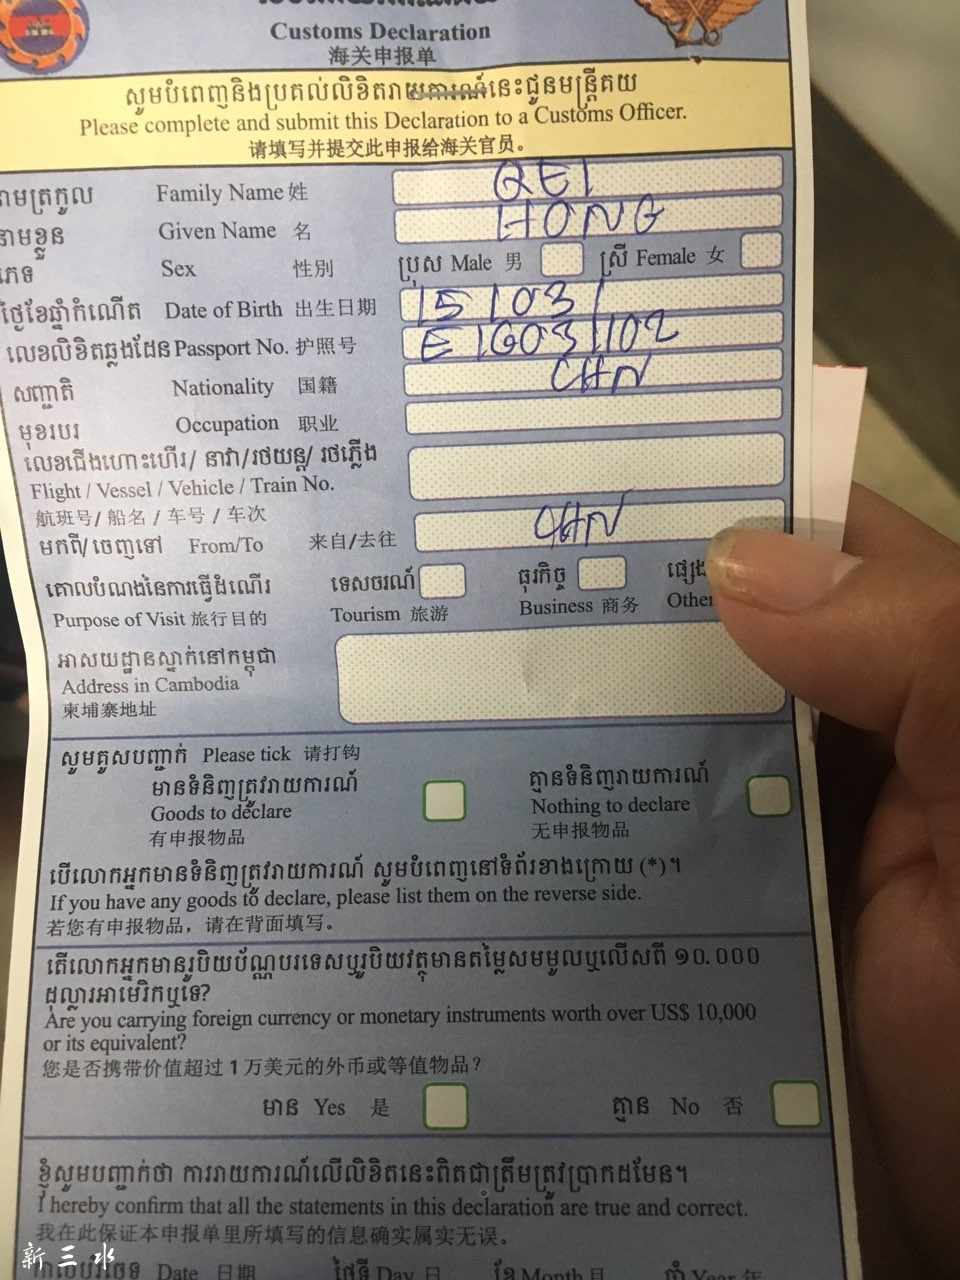 Customs Declaration
海关申报单
សូមបំពេញនិងប្រគល់លិខិតរាយការណ៍នេះជូនមន្ត្រីគយ
Please complete and submit this Declaration to a Customs Officer.
请填写并提交此申报给海关官员。
នាមត្រកូល Family Name 姓 QEI
នាមខ្លួន Given Name 名 HONG
ភេទ Sex 性别 ប្រុស Male 男 ស្រី Female 女
ថ្ងៃខែឆ្នាំកំណើត Date of Birth 出生日期 15 03
លេខលិខិតឆ្លងដែន Passport No. 护照号 E1G031102
សញ្ជាតិ Nationality 国籍 CHN
មុខរបរ Occupation 职业
លេខជើងហោះហើរ/ នាវា/រថយន្ត/ រថភ្លើង
Flight / Vessel / Vehicle / Train No.
航班号/ 船名 / 车号 / 车次
មកពី/ ចេញទៅ From/To 来自/去往 CHN
គោលបំណងនៃការធ្វើដំណើរ ទេសចរណ៍ ធុរកិច្ច ផ្សេង
Purpose of Visit 旅行目的 Tourism 旅游 Business 商务 Other
អាសយដ្ឋានស្នាក់នៅកម្ពុជា
Address in Cambodia
柬埔寨地址
សូមគូសបញ្ជាក់ Please tick 请打钩
មានទំនិញត្រូវរាយការណ៍ គ្មានទំនិញរាយការណ៍
Goods to declare Nothing to declare
有申报物品 无申报物品
បើលោកអ្នកមានទំនិញត្រូវរាយការណ៍ សូមបំពេញនៅទំព័រខាងក្រោយ (*)។
If you have any goods to declare, please list them on the reverse side.
若您有申报物品，请在背面填写。
តើលោកអ្នកមានរូបិយប័ណ្ណបរទេសឬរូបិយវត្ថុមានតម្លៃសមមូលឬលើសពី ១០.០០០
ដុល្លារអាមេរិកឬទេ?
Are you carrying foreign currency or monetary instruments worth over US$ 10,000
or its equivalent?
您是否携带价值超过 1 万美元的外币或等值物品？
មាន Yes 是 គ្មាន No 否
ខ្ញុំសូមបញ្ជាក់ថា ការរាយការណ៍លើលិខិតនេះពិតជាត្រឹមត្រូវប្រាកដមែន។
I hereby confirm that all the statements in this declaration are true and correct.
我在此保证本申报单里所填写的信息确实属实无误。
Date 日期 ថ្ងៃទី Day 日 ខែ Month 月 ឆ្នាំ Year 年
新三水